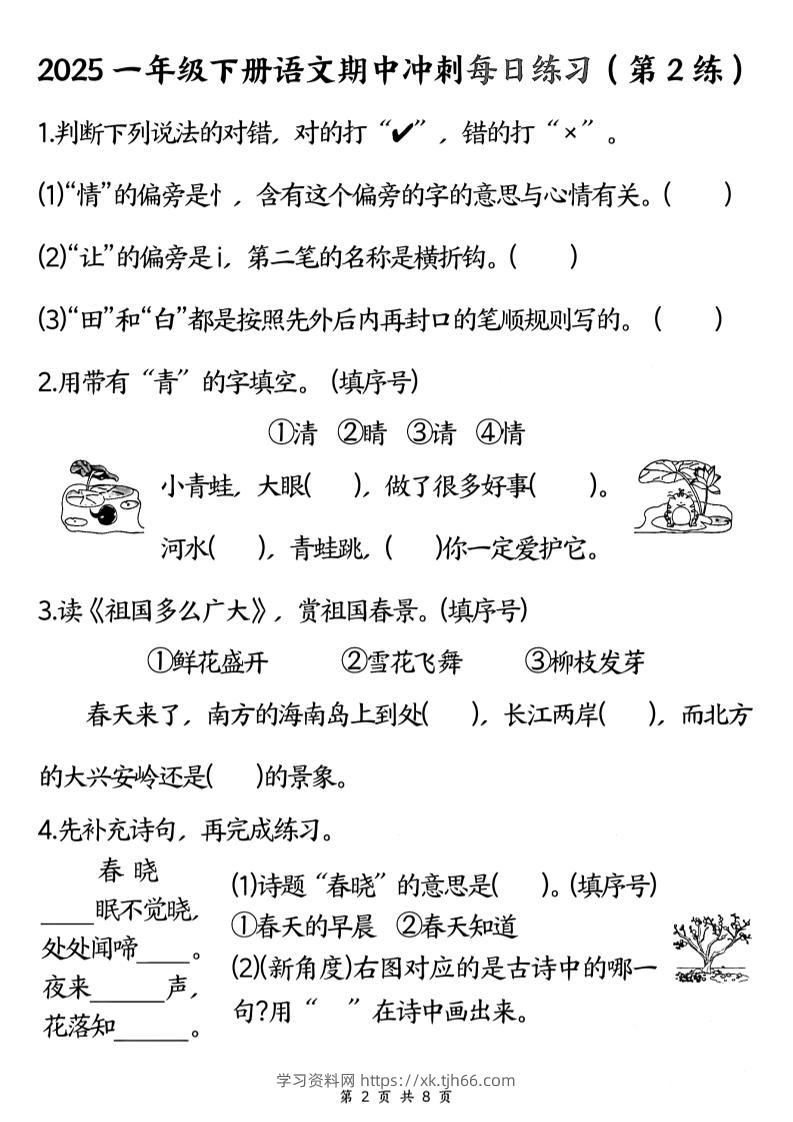 2025 一年级下册语文期中冲刺每日练习（第 2 练）
1.判断下列说法的对错，对的打“✔”，错的打“×”。
(1)“情”的偏旁是忄，含有这个偏旁的字的意思与心情有关。(　　)
(2)“让”的偏旁是i，第二笔的名称是横折钩。(　　)
(3)“田”和“白”都是按照先外后内再封口的笔顺规则写的。(　　)
2.用带有“青”的字填空。(填序号)
①清 ②晴 ③请 ④情
小青蛙，大眼(　　)，做了很多好事(　　)。
河水(　　)，青蛙跳，(　　)你一定爱护它。
3.读《祖国多么广大》，赏祖国春景。(填序号)
①鲜花盛开 ②雪花飞舞 ③柳枝发芽
春天来了，南方的海南岛上到处(　　)，长江两岸(　　)，而北方
的大兴安岭还是(　　)的景象。
4.先补充诗句，再完成练习。
春 晓
____眠不觉晓，
处处闻啼____。
夜来______声，
花落知______。
(1)诗题“春晓”的意思是(　　)。(填序号)
①春天的早晨 ②春天知道
(2)(新角度)右图对应的是古诗中的哪一
句?用“　”在诗中画出来。
学习资料网 https://xk.tjh66.com
第 2 页 共 8 页